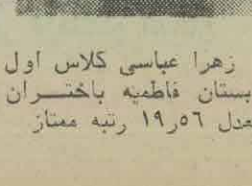 زهرا عباسی کلاس اول
بستان فاطمیه باختران
عدل ۱۹٫۵۶ رتبه ممتاز